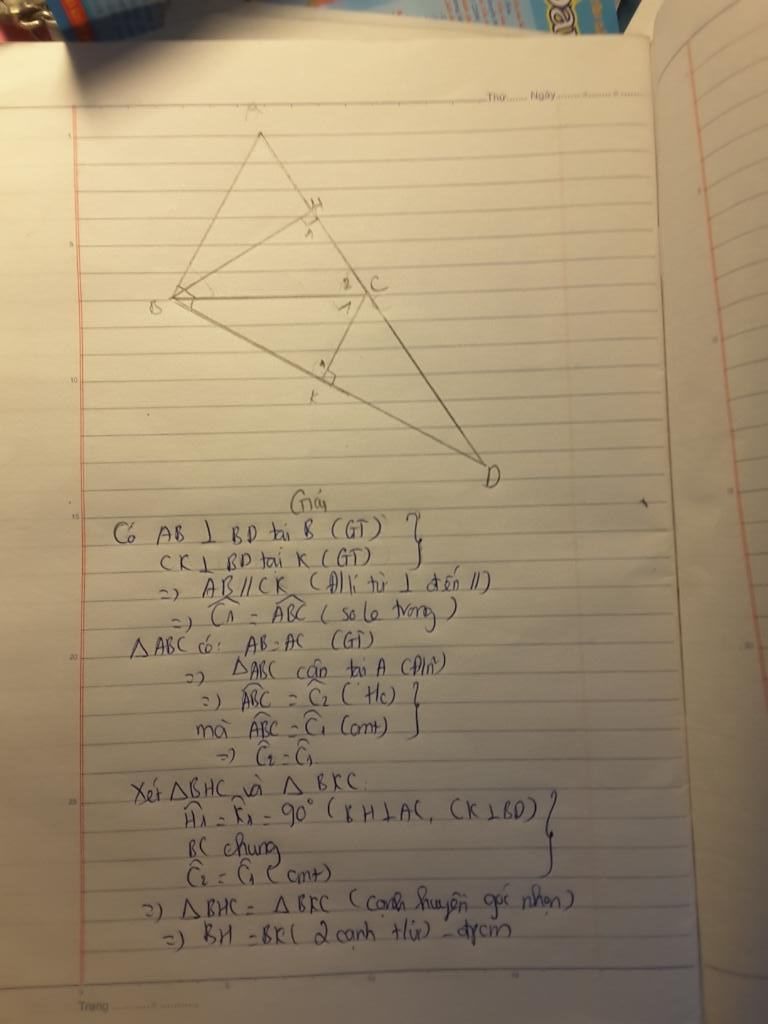 Thứ...... Ngày.......
A
H
1
2 C
B
1
1
K
D
Giải
Có AB ⊥ BD tại B (GT)
CK ⊥ BD tại K (GT)
=> AB // CK (Đ/lí từ ⊥ đến //)
=> Ĉ1 = ABC (so le trong)
△ABC có: AB = AC (GT)
=> △ABC cân tại A (Đ/n)
=> ABC = Ĉ2 (t/c)
mà ABC = Ĉ1 (cmt)
=> Ĉ2 = Ĉ1
Xét △BHC và △BKC:
Ĥ1 = K̂1 = 90° (BH⊥AC, CK⊥BD)
BC chung
Ĉ2 = Ĉ1 (cmt)
=> △BHC = △BKC (cạnh huyền góc nhọn)
=> BH = BK (2 cạnh t/ứ) - đpcm
Trang